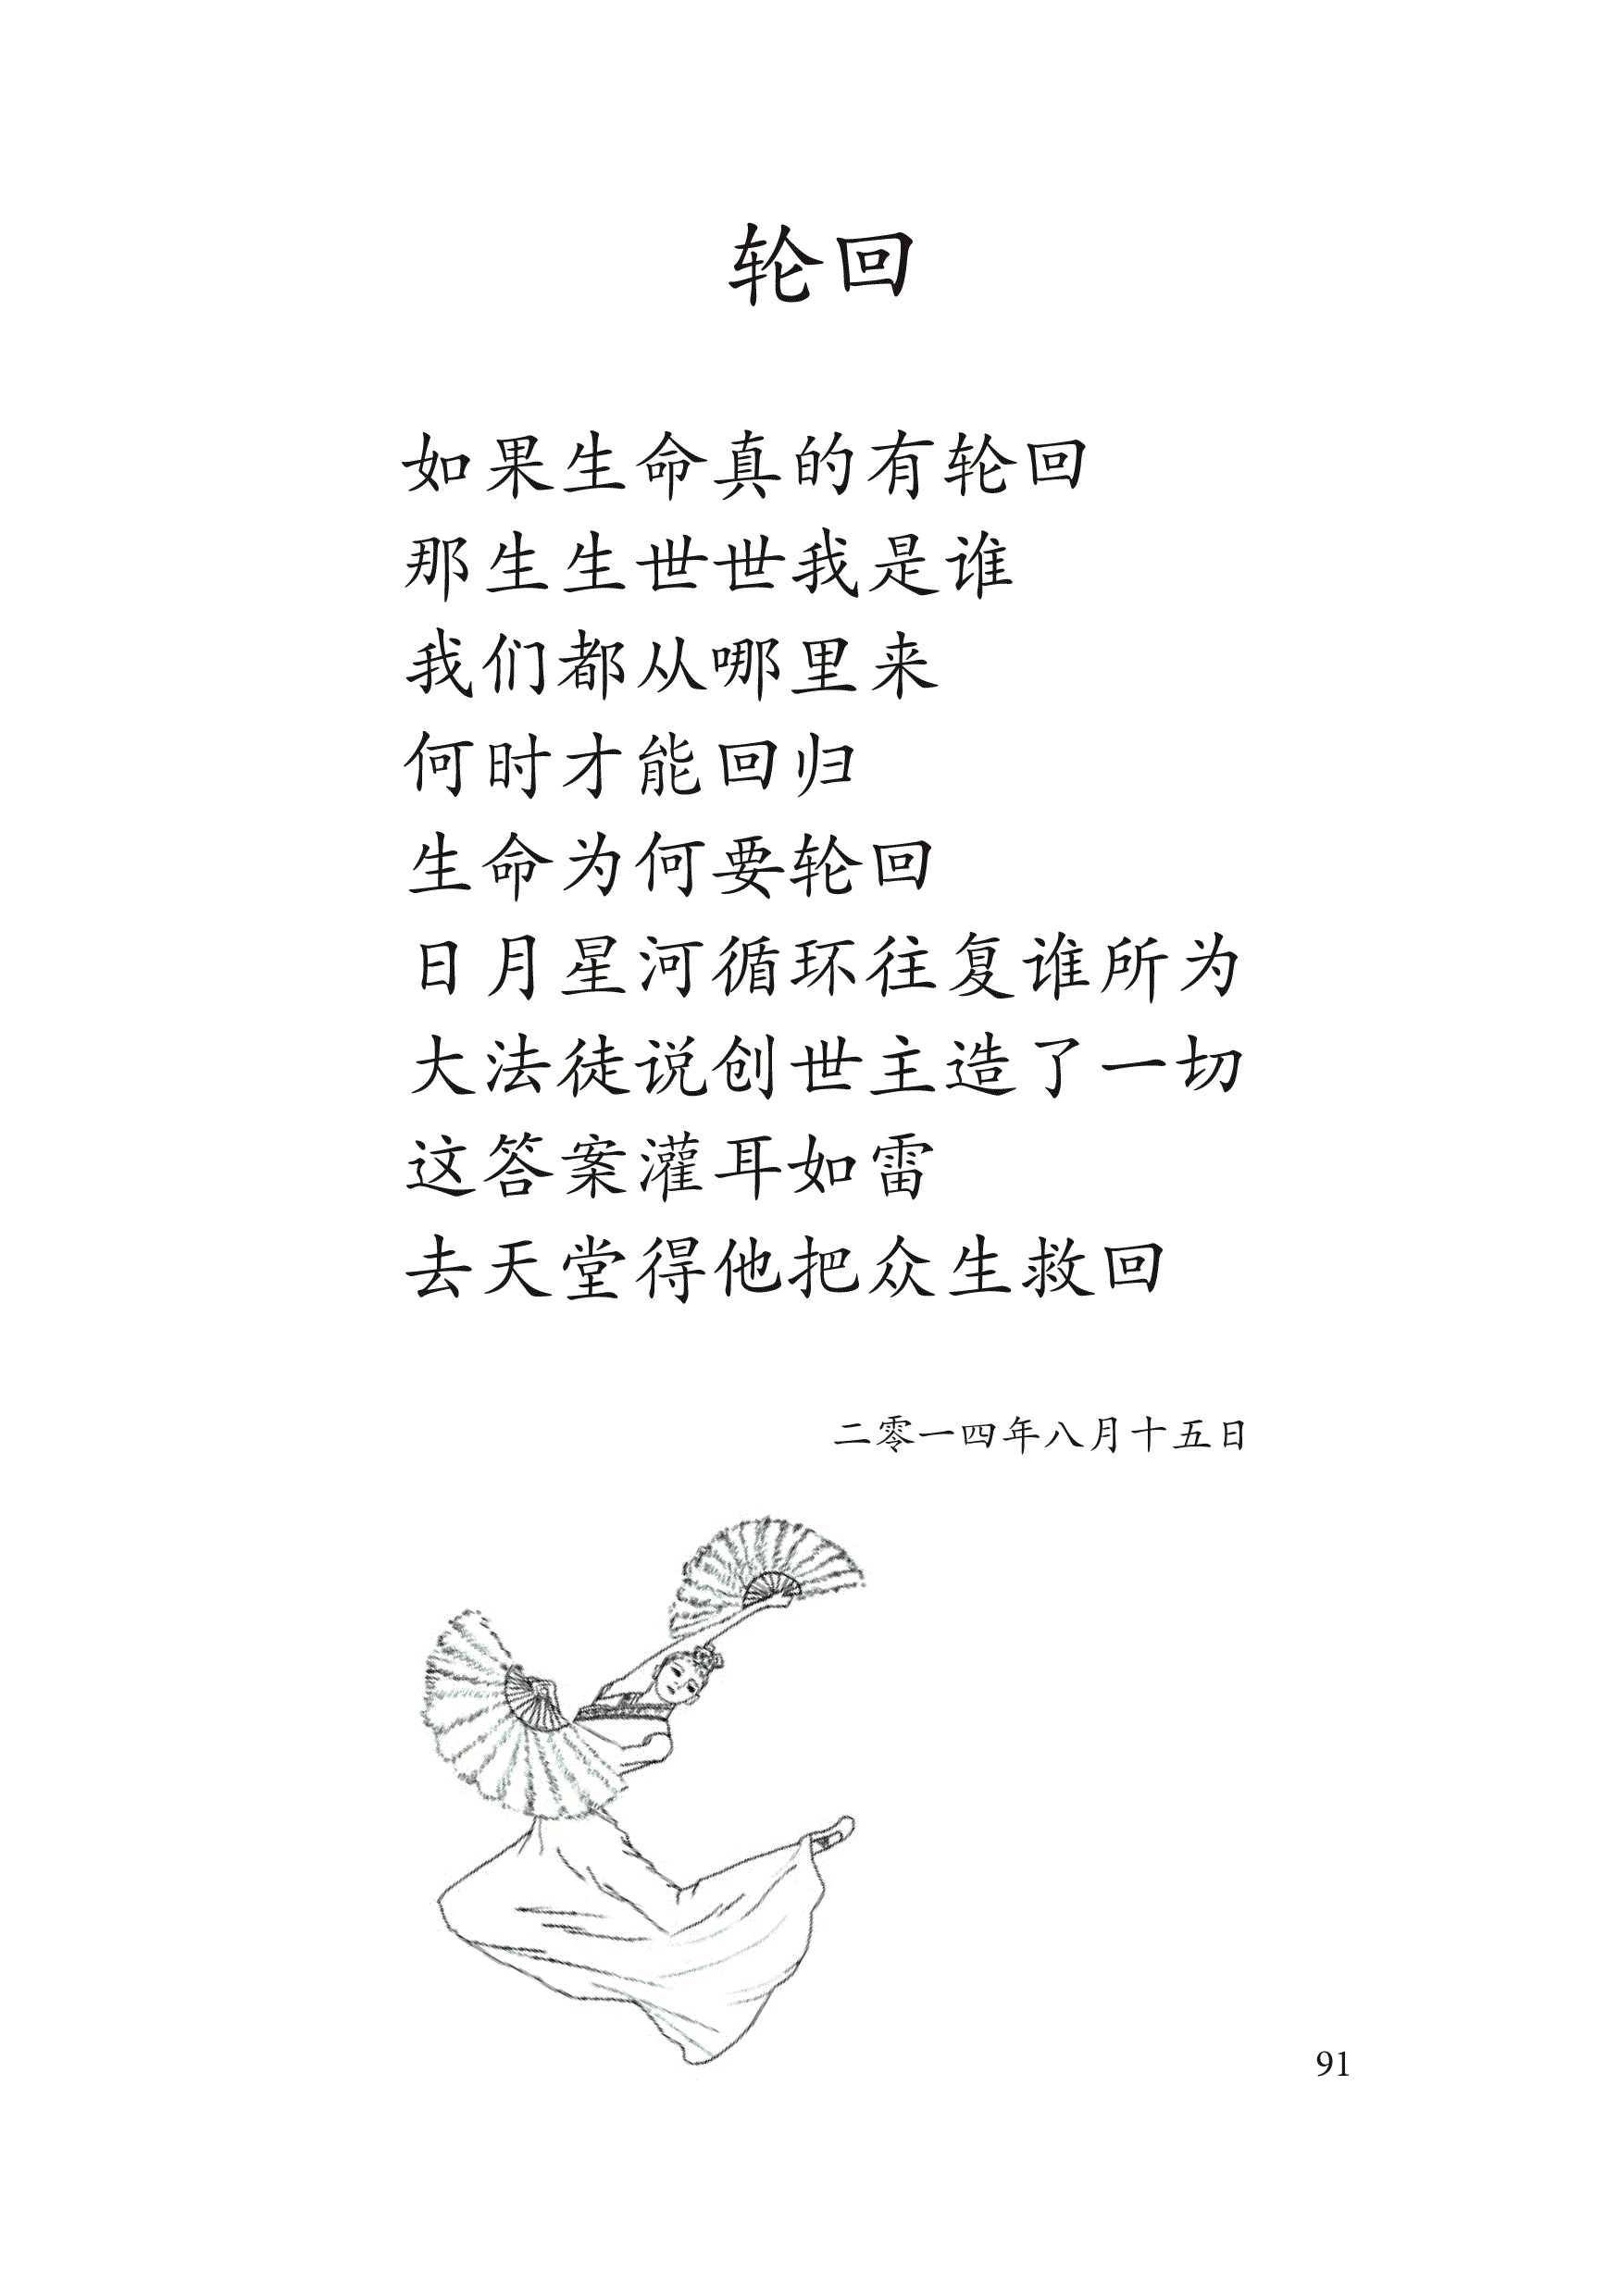 轮回
如果生命真的有轮回
那生生世世我是谁
我们都从哪里来
何时才能回归
生命为何要轮回
日月星河循环往复谁所为
大法徒说创世主造了一切
这答案灌耳如雷
去天堂得他把众生救回
二零一四年八月十五日
91